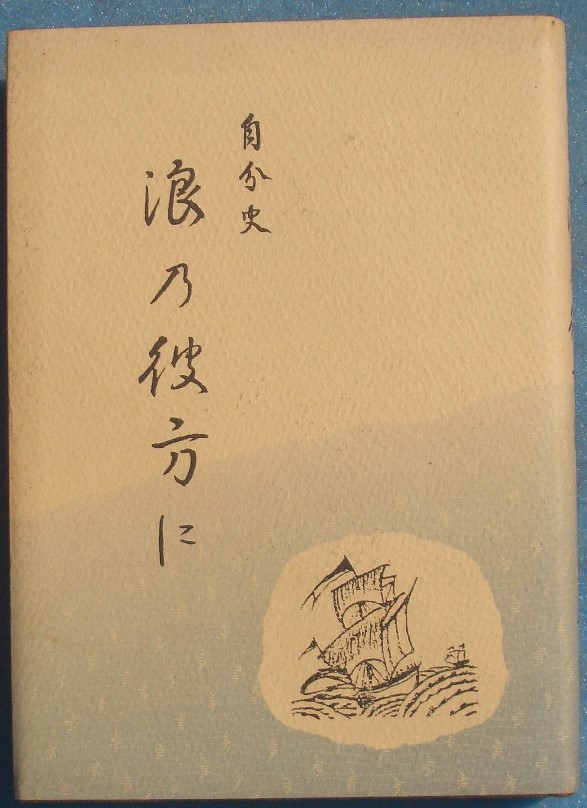 自分史
浪乃彼方に